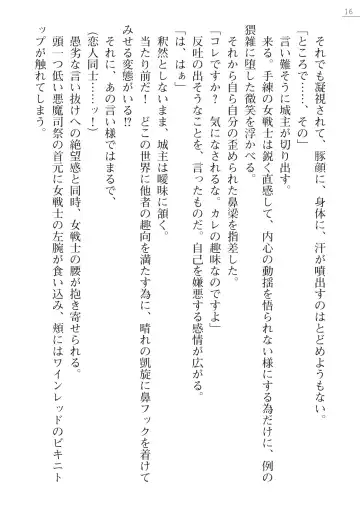 16
それでも凝視されて、豚顔に、身体に、汗が噴出すのはとどめようもない。
「ところで……、その」
言い難そうに城主が切り出す。
来る。手練の女戦士は鋭く直感して、内心の動揺を悟られない様にする為だけに、例の
猥雑に堕した微笑を浮かべる。
それから自ら自分の歪められた鼻梁を指差した。
「コレですか？　気になされるな。カレの趣味なのですよ」
反吐の出そうなことを、言ったものだ。自己を嫌悪する感情が広がる。
「は、はぁ」
釈然としないまま、城主は曖昧に頷く。
当たり前だ！　どこの世界に他者の趣向を満たす為に、晴れの凱旋に鼻フックを着けて
みせる変態がいる!?
それに、あの言い様ではまるで、
(恋人同士……ッ！)
愚劣な言い抜けへの絶望感と同時、女戦士の腰が抱き寄せられる。
頭一つ低い悪魔司祭の首元に女戦士の左腕が食い込み、頬にはワインレッドのビキニト
ップが触れてしまう。